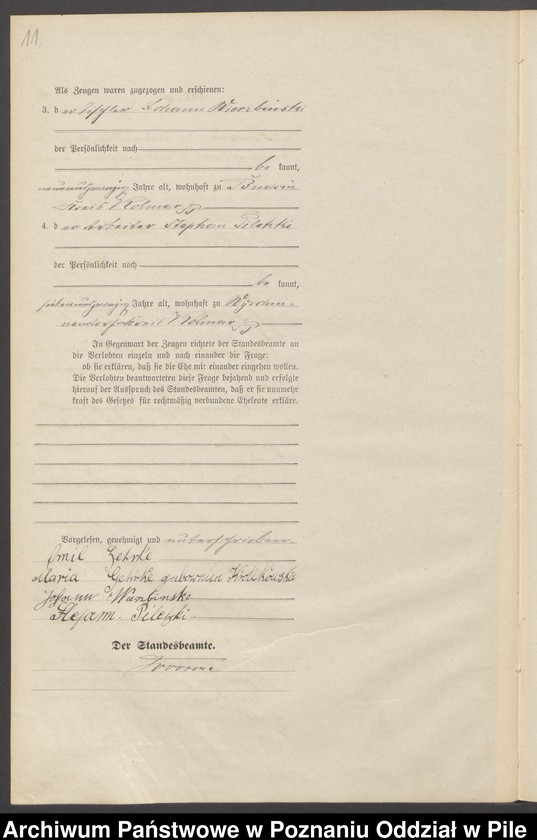 11.
Als Zeugen waren zugezogen und erschienen:
3. der Tischler Johann Wierzbinski
der Persönlichkeit nach
be kannt,
neunundzwanzig Jahre alt, wohnhaft zu
Kreis Kolmar
4. der Arbeiter Stephan Piletzki
der Persönlichkeit nach
be kannt,
siebenundzwanzig Jahre alt, wohnhaft zu
Kreis Kolmar
In Gegenwart der Zeugen richtete der Standesbeamte an
die Verlobten einzeln und nach einander die Frage:
ob sie erklären, daß sie die Ehe mit einander eingehen wollen.
Die Verlobten beantworteten diese Frage bejahend und erfolgte
hierauf der Ausspruch des Standesbeamten, daß er sie nunmehr
kraft des Gesetzes für rechtmäßig verbundene Eheleute erkläre.
Vorgelesen, genehmigt und unterschrieben.
Emil
Maria
Johann
Piletzki
Der Standesbeamte.
Archiwum Państwowe w Poznaniu Oddział w Pile